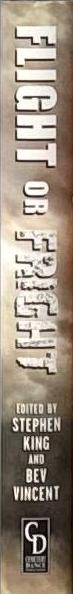 FLIGHT OR FRIGHT
EDITED BY
STEPHEN
KING
AND
BEV
VINCENT
CD
CEMETERY
DANCE